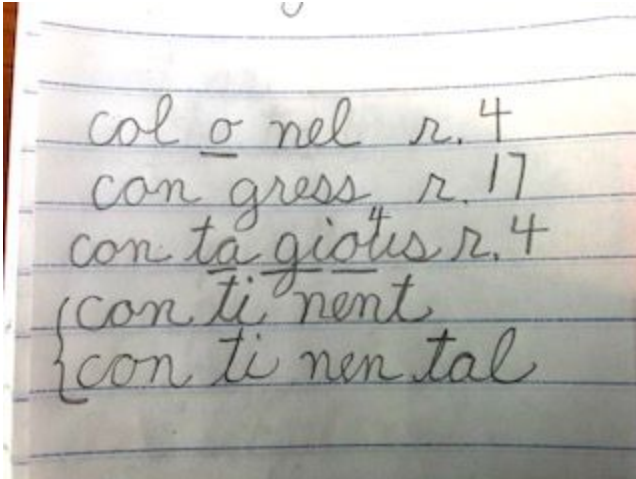 col o nel r. 4
con gress r. 17
con ta gi ous r. 4
con ti nent
con ti nen tal